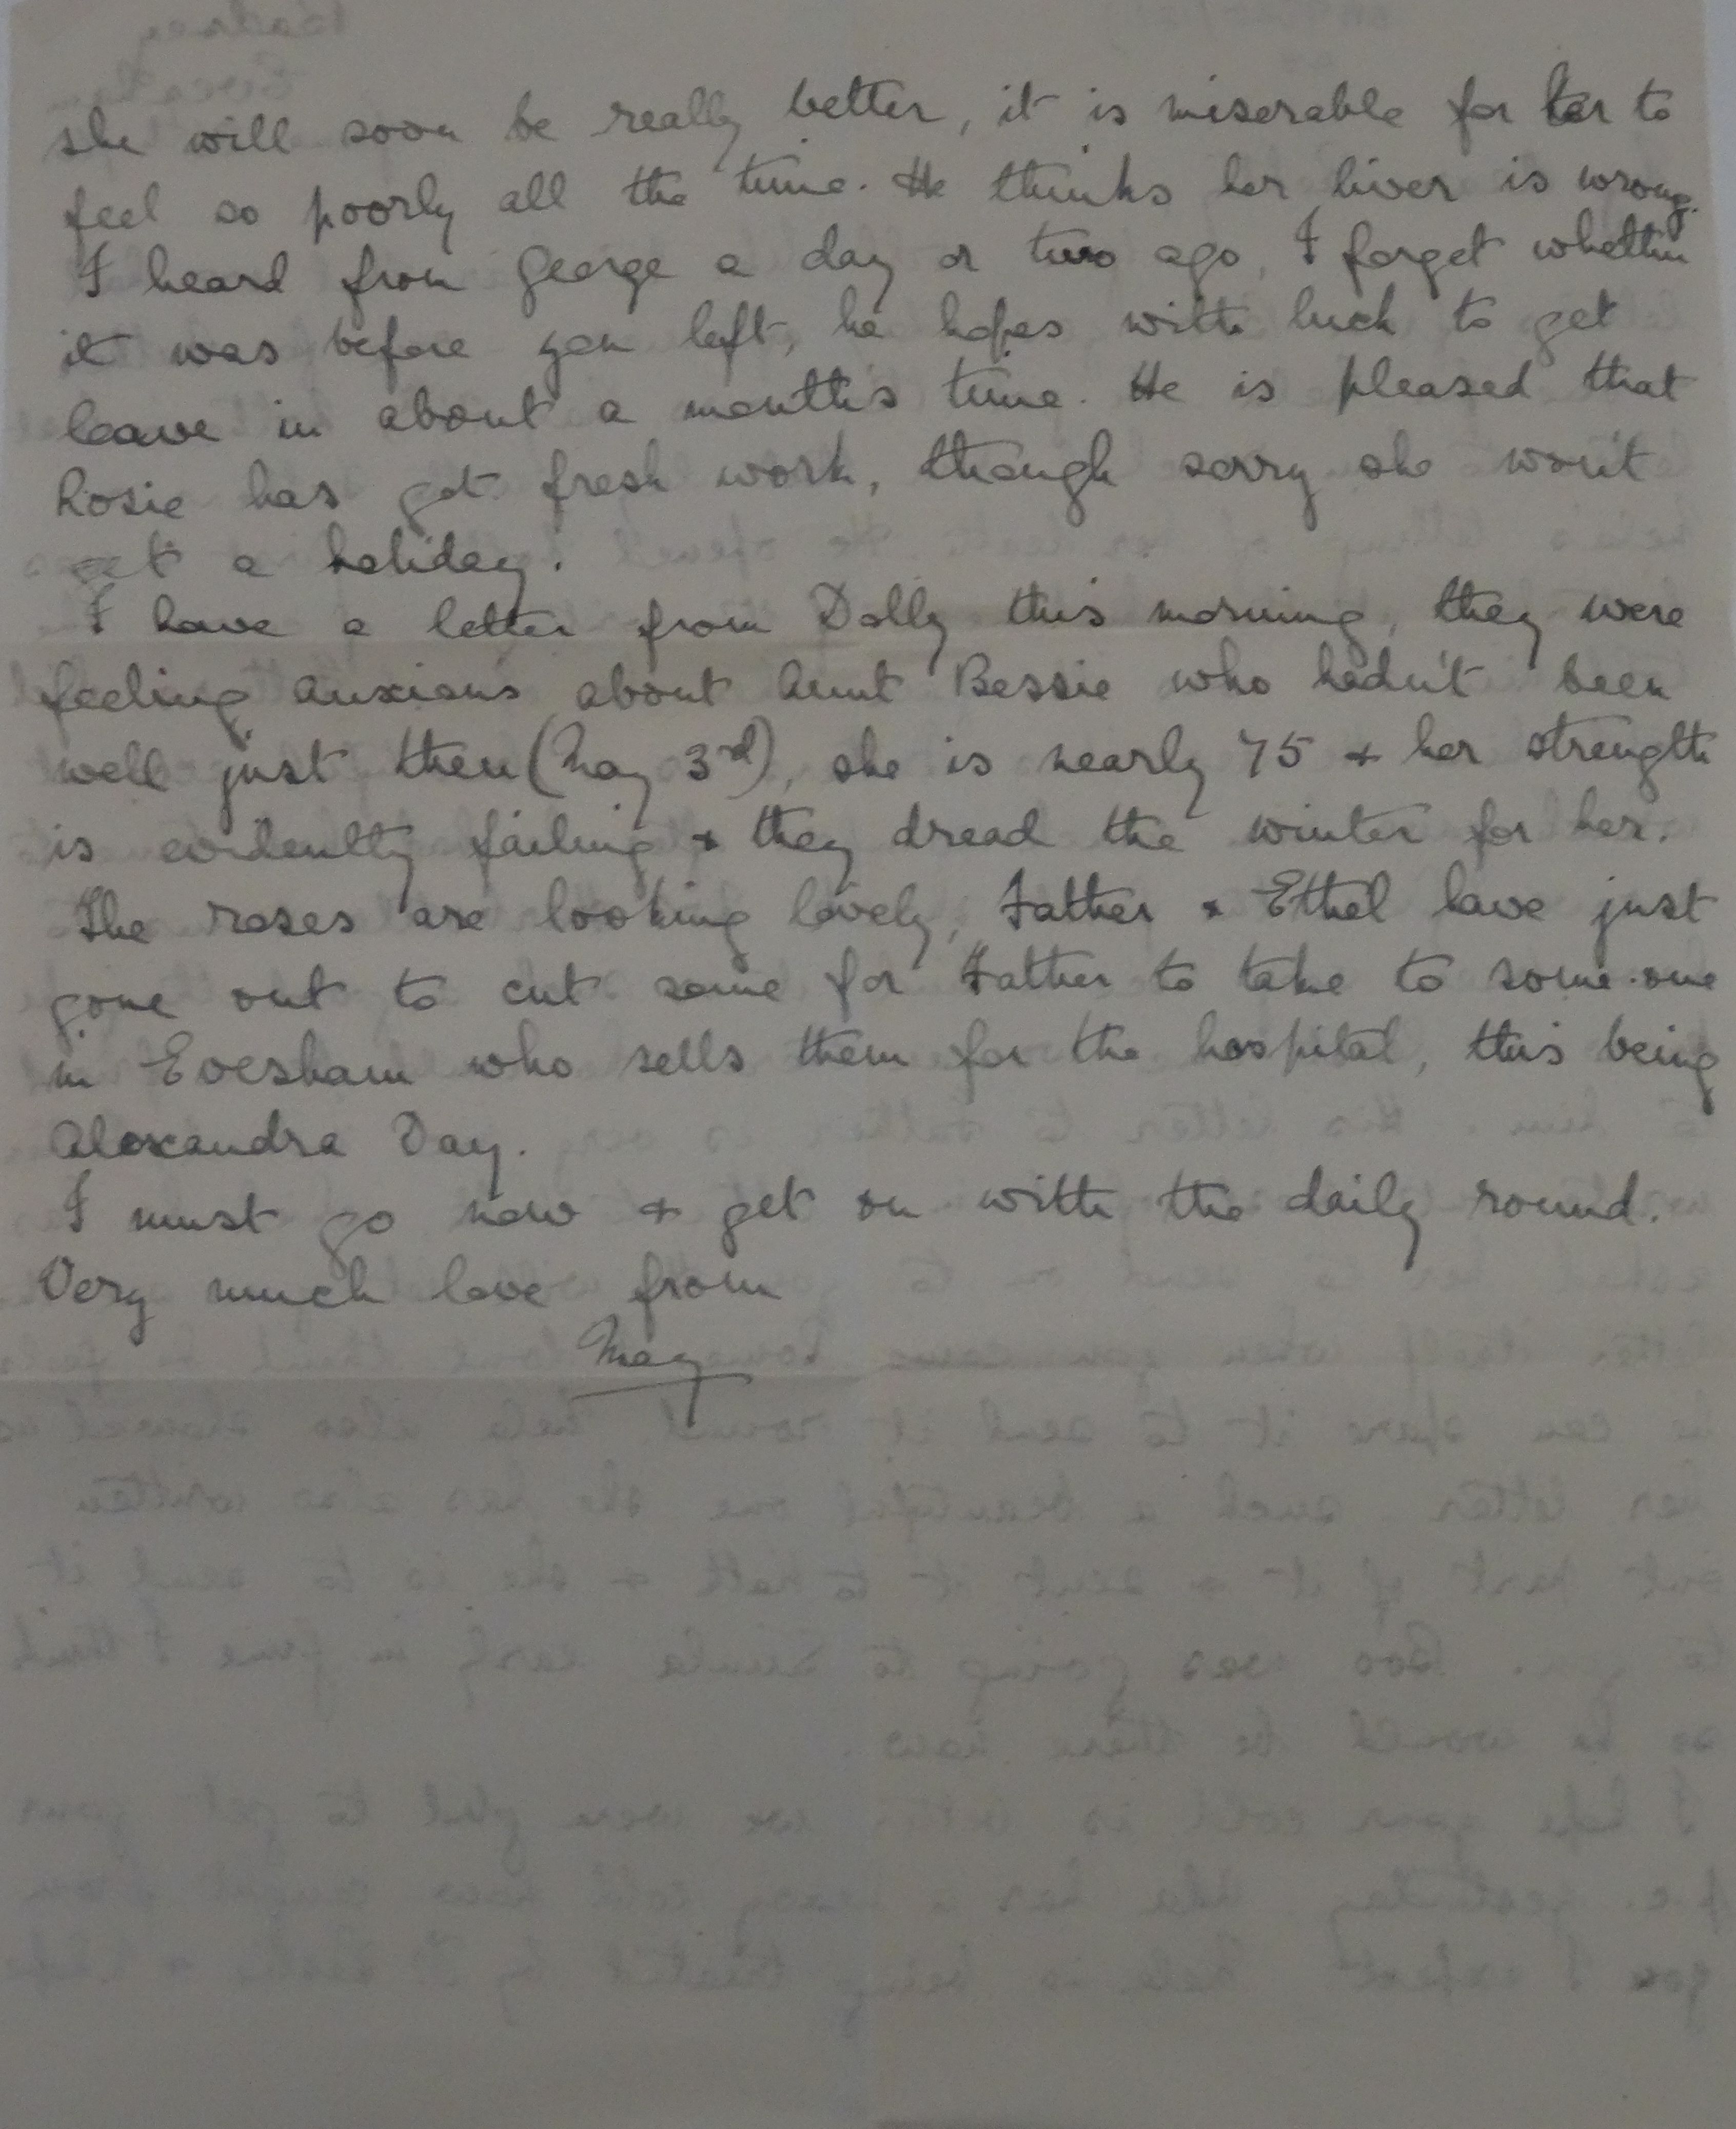 she will soon be really better, it is miserable for her to
feel so poorly all the time. He thinks her liver is wrong.
I heard from George a day or two ago, I forget whether
it was before you left, he hopes with luck to get
leave in about a month's time. He is pleased that
Rosie has got fresh work, though sorry she won't
get a holiday.
I have a letter from Dolly this morning, they were
feeling anxious about Aunt Bessie who hadn't been
well just then (May 3rd), she is nearly 75 & her strength
is evidently failing & they dread the winter for her.
The roses are looking lovely, Father & Ethel have just
gone out to cut some for Father to take to some-one
in Evesham who sells them for the hospital, this being
Alexandra Day.
I must go now & get on with the daily round.
Very much love from
May